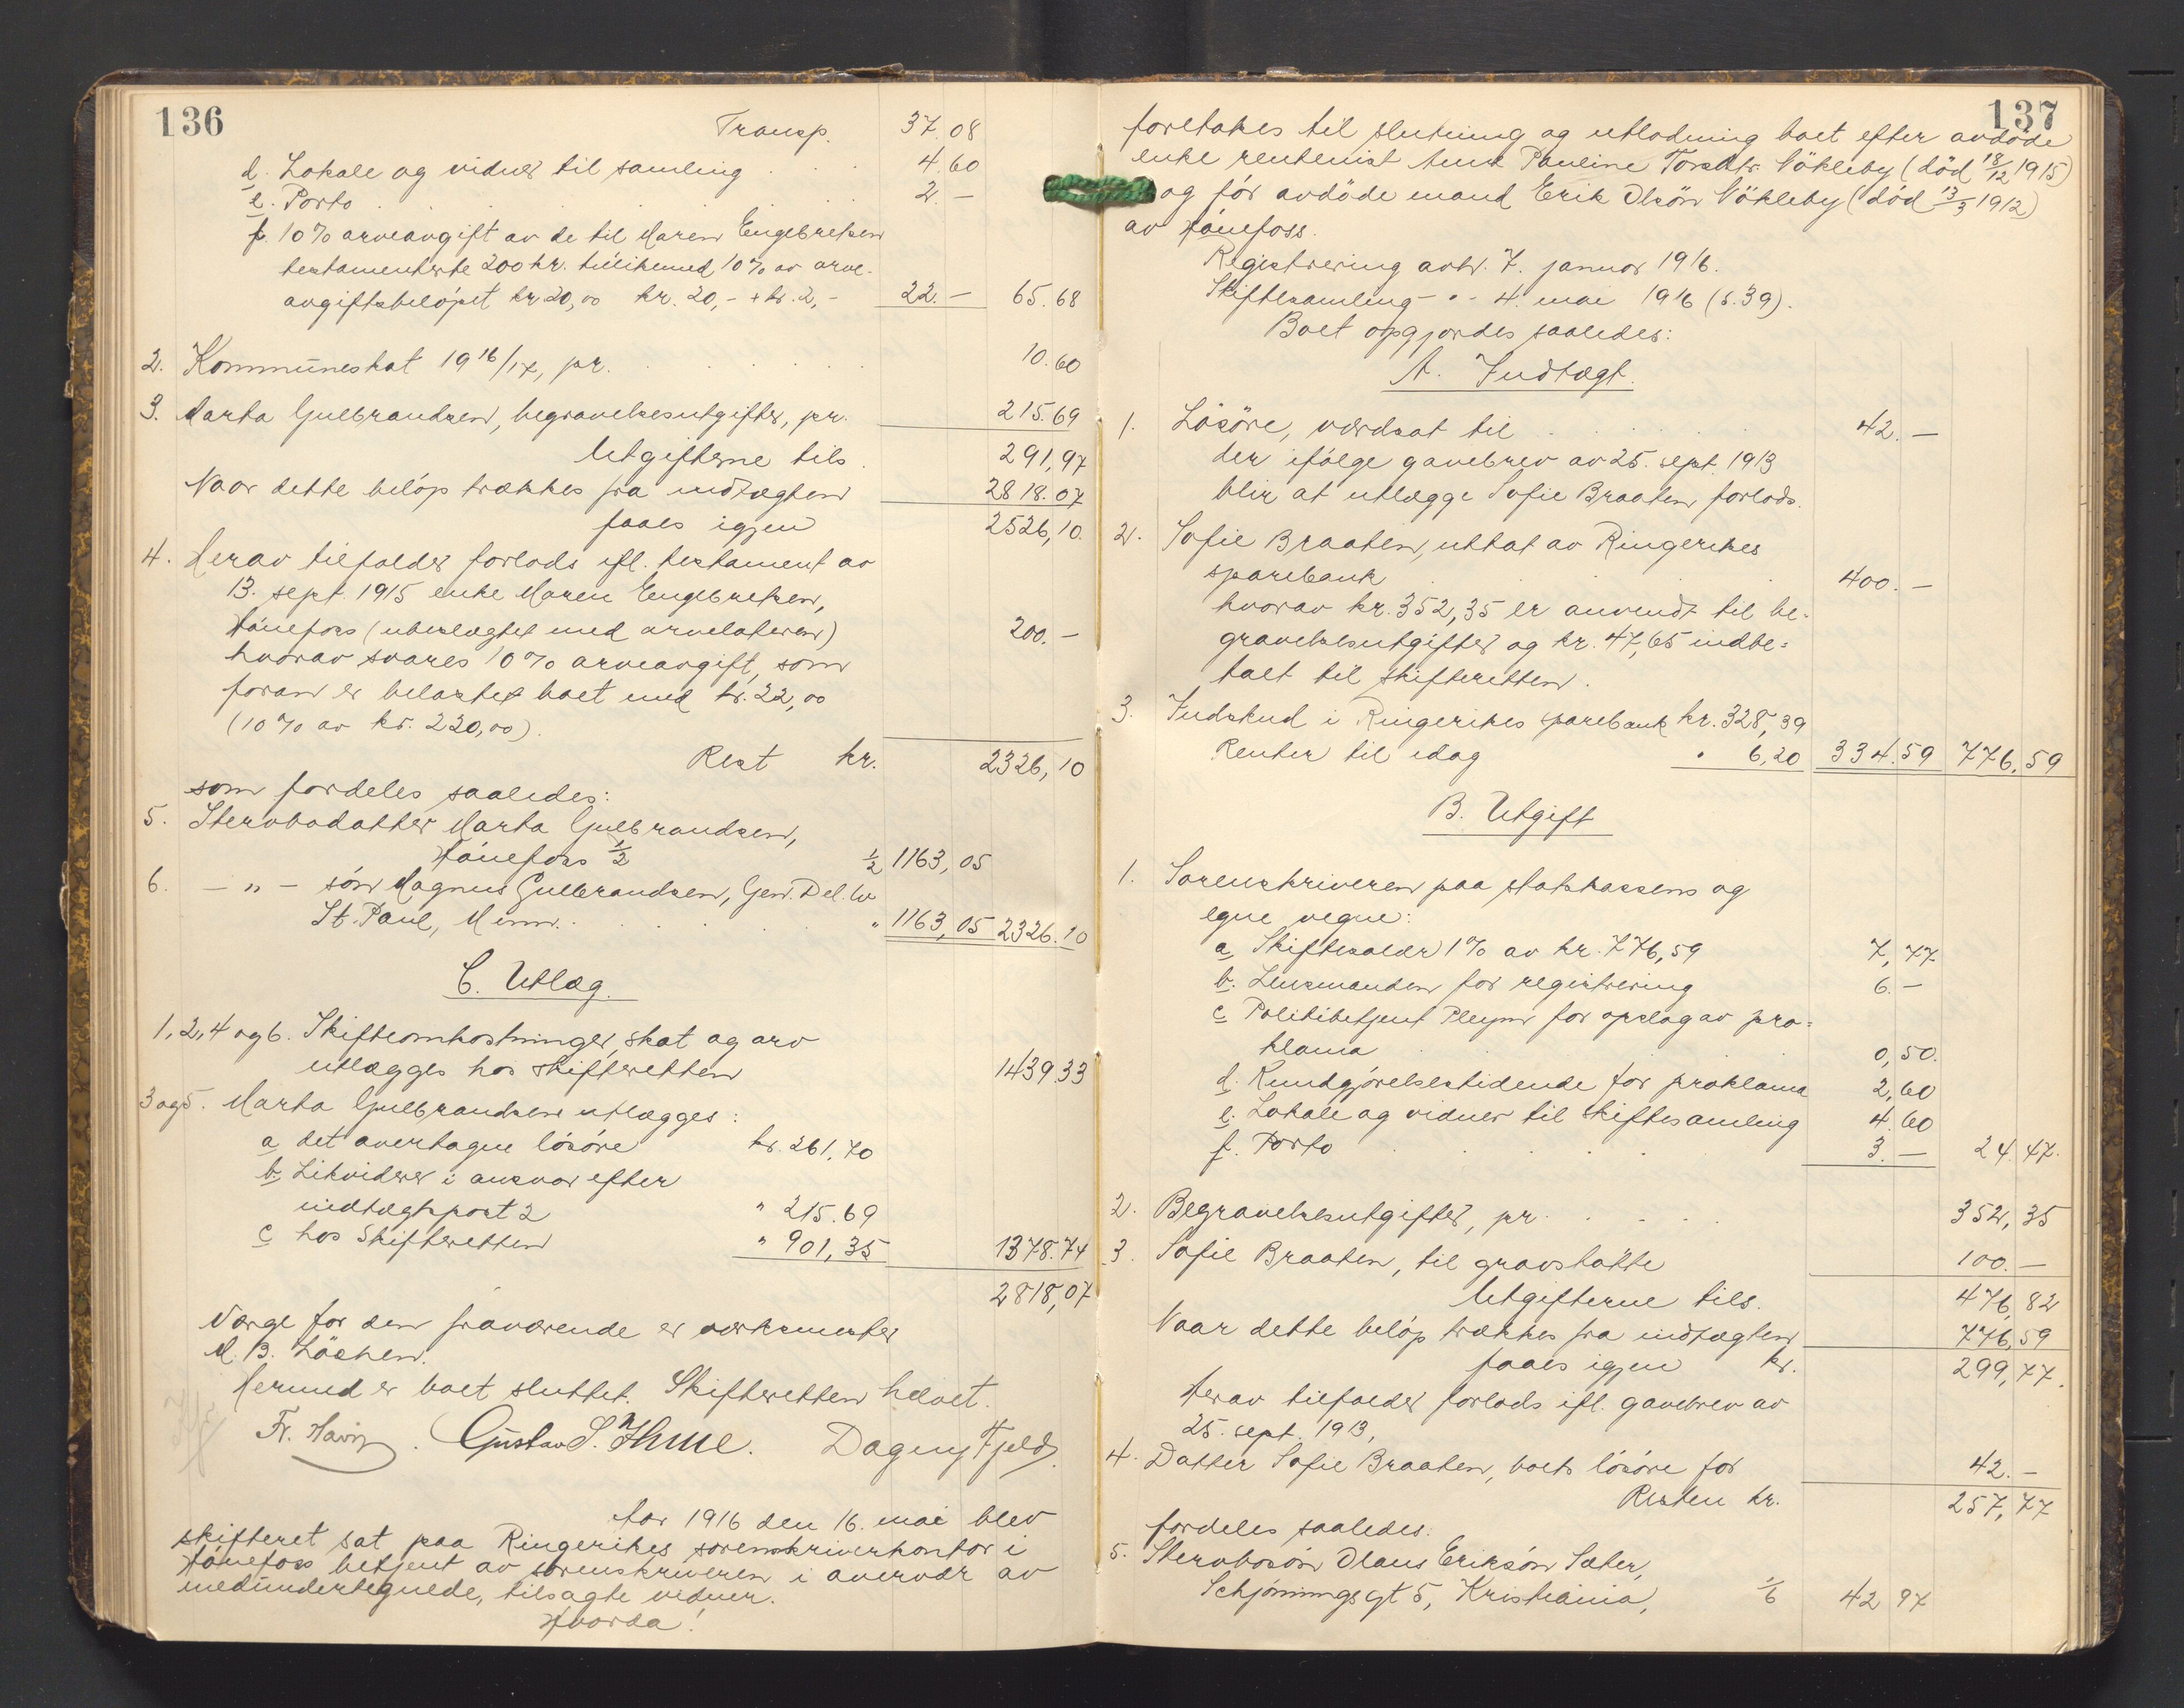 136
Transp. 37.08
d. Lokale og vidner til samling . . 4.60
e. Porto . . . . . . . 2.-
f. 10% arveavgift av de til Maren Engebretsen
testamenterte 200 kr. tillikemed 10% av arve-
avgiftsbeløpet kr 20,00 kr. 20,- + kr. 2,- 22.- 65.68
2. Kommuneskat 1916/17, pr. . . . . . . 10.60
3. Marta Gulbrandsen, begravelsesutgifter, pr. 215.69
Utgifterne tils. 291,97
Naar dette beløp trækkes fra indtægten 2818.07
faaes igjen 2526,10.
4. Herav tilfalder forlods ifl. testament av
13. sept. 1915 enke Maren Engebretsen,
Hönefoss (ubeslegtet med arvelateren) 200.-
hvorav svares 10% arveavgift, som
foran er belastet boet med kr. 22,00
(10% av kr. 220,00).
Rest kr. 2326,10
som fordeles saaledes:
5. Stervbodatter Marta Gulbrandsen,
Hönefoss 1/2 1/2 1163,05
6. - " - sön Magnus Gulbrandsen, Gen. Del. W
St. Paul, Minn. . . . . . " 1163,05 2326.10
C. Utlæg.
1, 2, 4 og 6. Skifteomkostninger, skat og arv
utlægges hos skifteretten 1439.33
3 og 5. Marta Gulbrandsen utlægges:
a det overtagne lösöre kr. 261.70
b. Likviderer i ansvar efter
indtægtspost 2 " 215.69
c hos Skifteretten " 901,35 1378.74
2818,07
Værge for den fraværende er verksmester
M. B. Löchen.
Hermed er boet sluttet. Skifteretten hævet.
Fr. Gustav S. Dagny Fjeld
Aar 1916 den 16. mai blev
skifteret sat paa Ringerikes sorenskriverkontor i
Hönefoss betjent av sorenskriveren i overvær av
medundertegnede, tilsagte vidner.
Hvorda!
137
foretokes til slutning og utlodning boet efter avdöde
enke rentenist Anne Pauline Torsdtr. Nökleby (död 18/12 1915)
og för avdöde mand Erik Olsön Nökleby (död 13/3 1912)
av Hönefoss.
Registrering avh. 7. januar 1916.
Skiftesamling - " - 4. mai 1916 (s. 39).
Boet opgjordes saaledes:
A. Indtægt.
1. Lösöre, værdsat til . . . . . . 42.-
der ifölge gavebrev av 25. sept. 1913
blir at utlægge Sofie Braaten forlods.
2. Sofie Braaten, uttat av Ringerikes
sparebank . . . . . 400.-
hvorav kr. 352,35 er anvendt til be-
gravelsesutgifter og kr. 47,65 indbe=
talt til skifteretten.
3. Indskud i Ringerikes sparebank kr. 328,39
Renter til idag " 6,20 334.59 776.59
B. Utgift
1. Sorenskriveren paa statskassens og
egne vegne:
a, Skiftesalær 1% av kr. 776,59 7,77
b. Lensmanden for registrering 6.-
c Politibetjent Pleym for opslag av pro=
klama . . . . 0,50.
d. Kundgjörelsestidende for proklama 2,60
e. Lokale og vidner til skiftesamling 4.60
f. Porto . . . . . 3.- 24.47.
2. Begravelsesutgifter, pr. . . . . 352,35
3. Sofie Braaten, til gravstötte 100.-
Utgifterne tils. 476,82
Naar dette beløp trækkes fra indtægten 776,59
faaes igjen kr. 299,77.
Herav tilfalder forlods ifl. gavebrev av
25. sept. 1913,
4. Datter Sofie Braaten, boets lösöre for 42.-
Resten kr. 257,77
fordeles saaledes:
5. Stervbosön Olaus Eriksön Sæter,
Schjönningsgt 5, Kristiania, 1/6 42 97